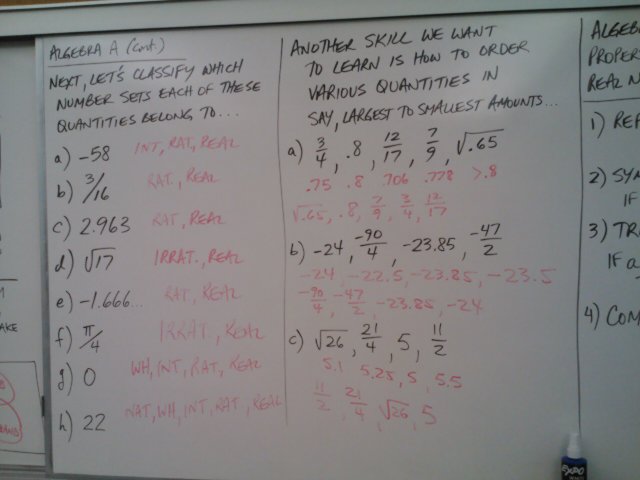 ALGEBRA A (Cont.)
NEXT, LET'S CLASSIFY WHICH
NUMBER SETS EACH OF THESE
QUANTITIES BELONG TO...
a) -58 INT, RAT, REAL
b) 3/16 RAT., REAL
c) 2.963 RAT, REAL
d) √17 IRRAT., REAL
e) -1.666... RAT, REAL
f) π/4 IRRAT., REAL
g) 0 WH, INT, RAT, REAL
h) 22 NAT, WH, INT, RAT, REAL
ANOTHER SKILL WE WANT
TO LEARN IS HOW TO ORDER
VARIOUS QUANTITIES IN
SAY, LARGEST TO SMALLEST AMOUNTS...
a) 3/4, .8, 12/17, 7/9, √.65
.75 .8 .706 .778 >.8
√.65, .8, 7/9, 3/4, 12/17
b) -24, -90/4, -23.85, -47/2
-24, -22.5, -23.85, -23.5
-90/4, -47/2, -23.85, -24
c) √26, 21/4, 5, 11/2
5.1 5.25, 5, 5.5
11/2, 21/4, √26, 5
ALGEB
PROPER
REAL N
1) REF
2) SYM
IF
3) TR
IF a
4) COM
AKE
EXPO